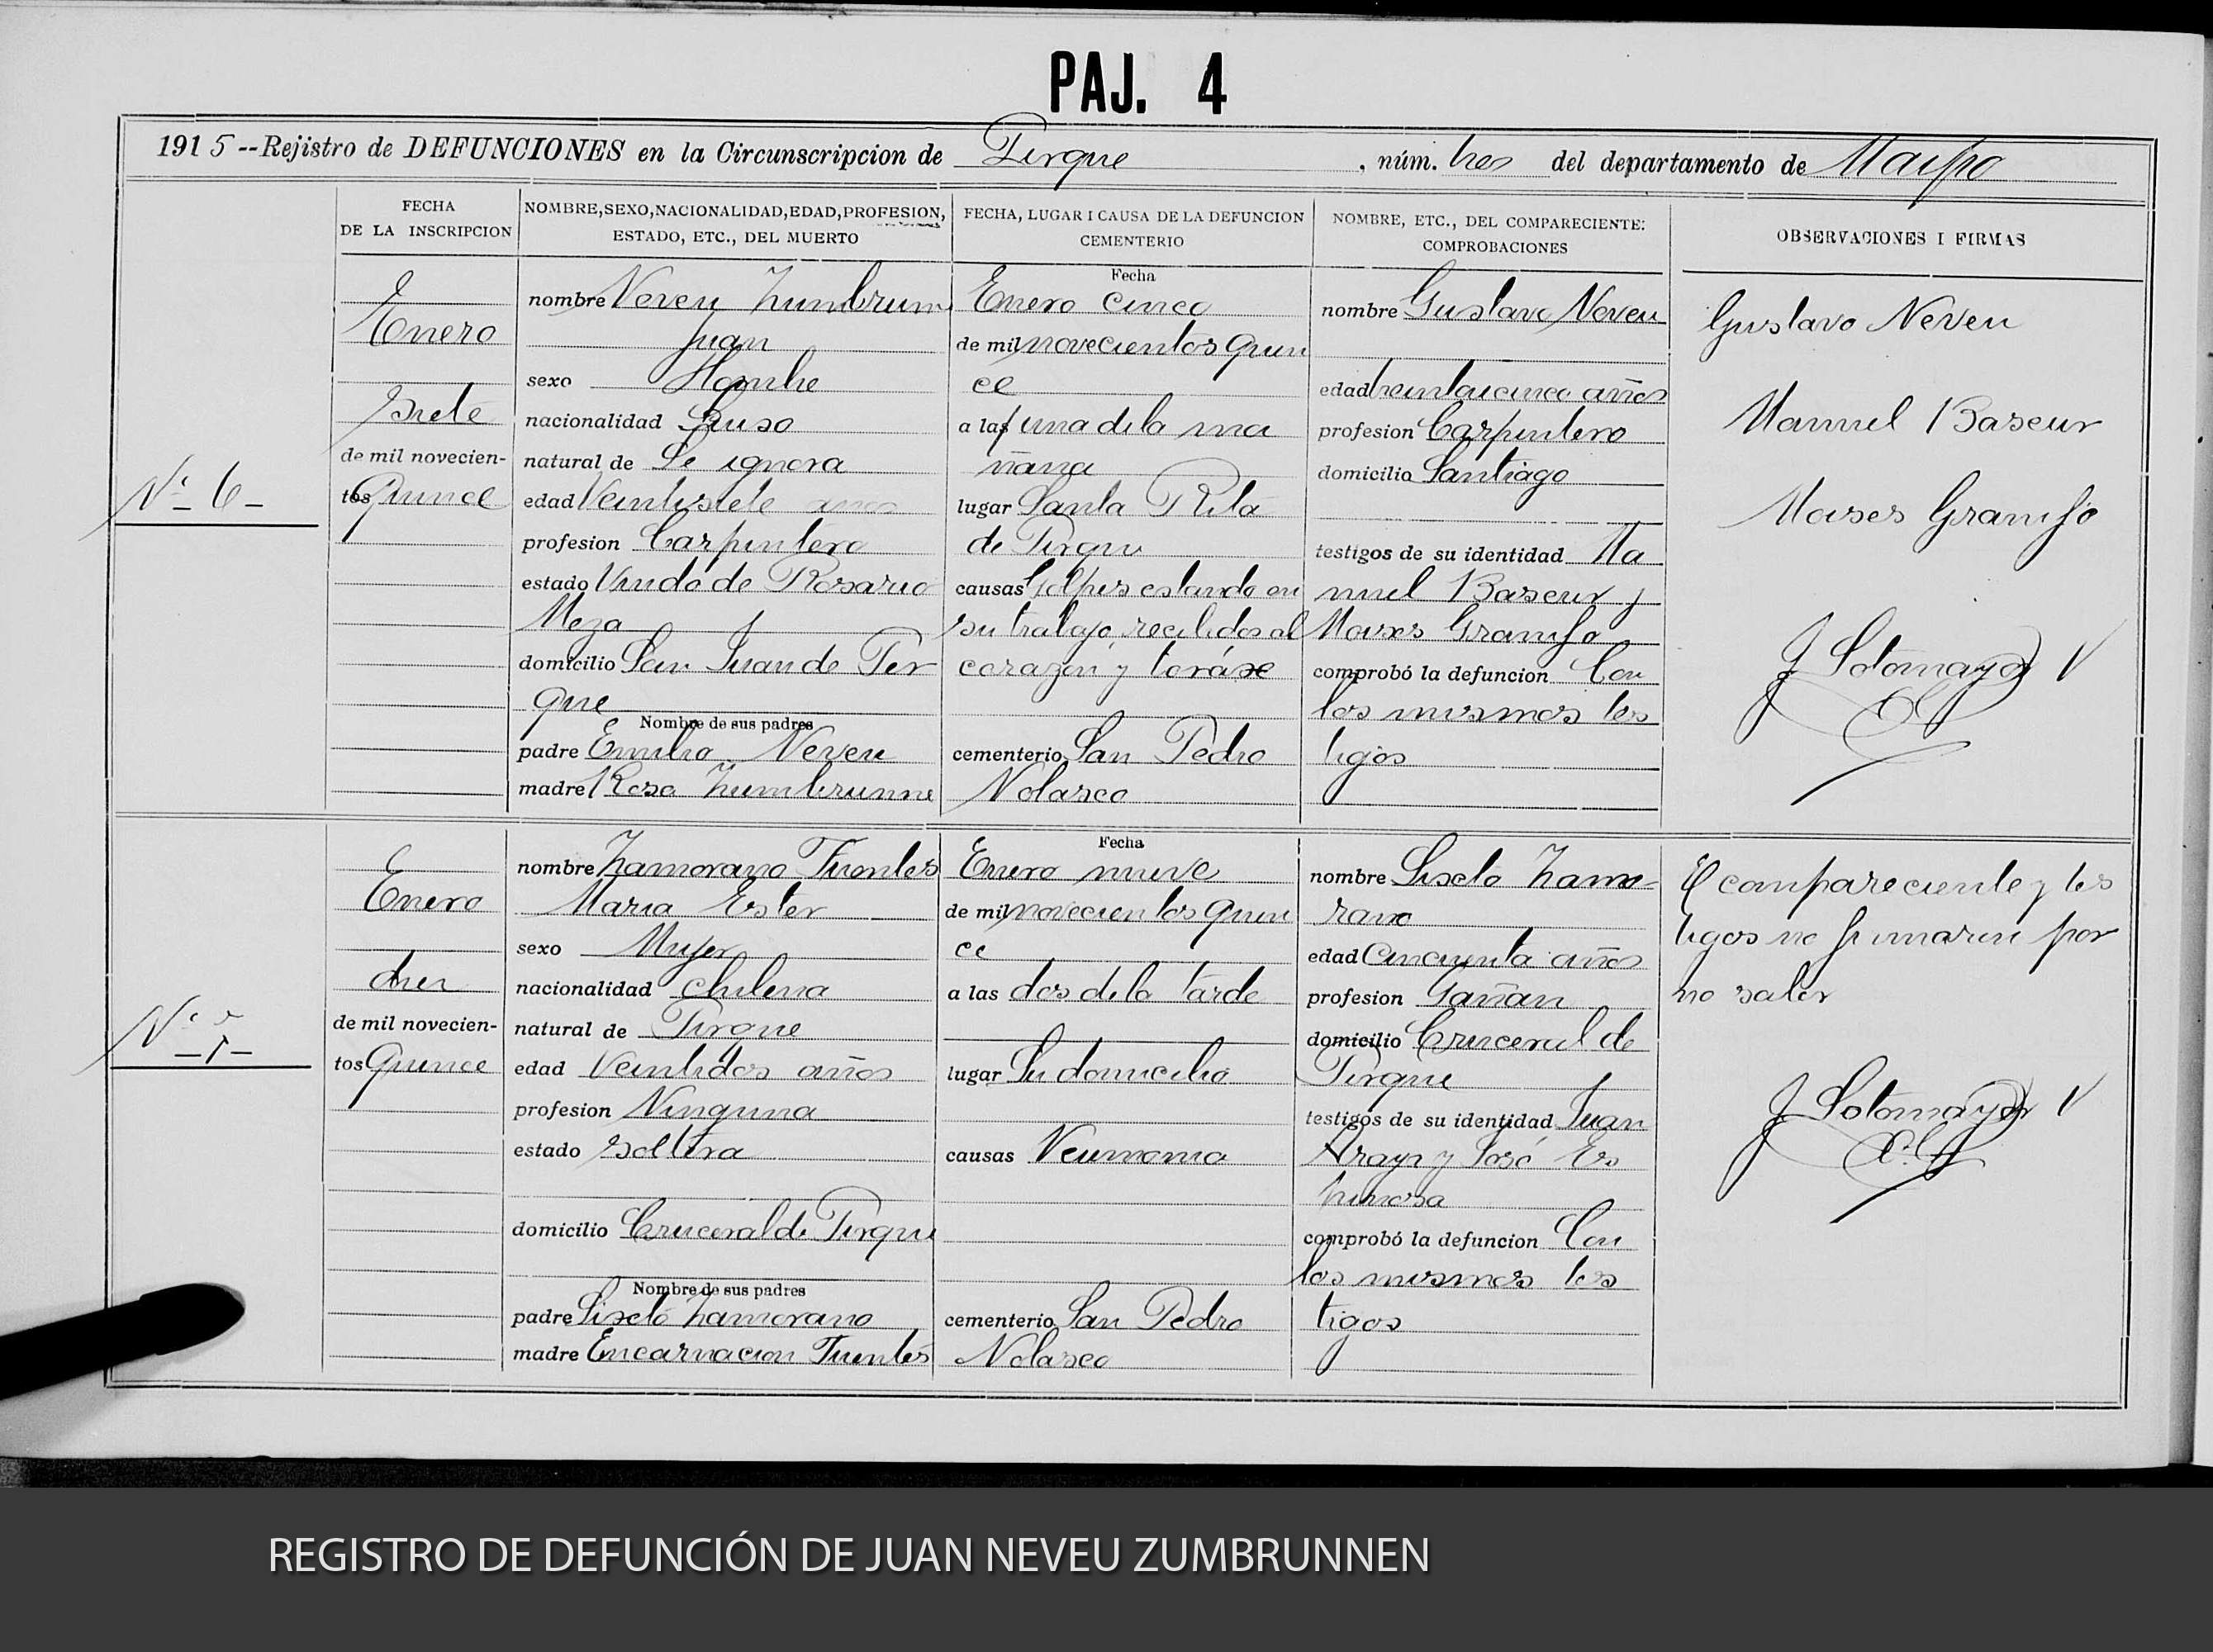 PAJ. 4
1915--Rejistro de DEFUNCIONES en la Circunscripcion de Pirque, núm. tres del departamento de Maipo
FECHA
DE LA INSCRIPCION
NOMBRE, SEXO, NACIONALIDAD, EDAD, PROFESION,
ESTADO, ETC., DEL MUERTO
FECHA, LUGAR I CAUSA DE LA DEFUNCION
CEMENTERIO
NOMBRE, ETC., DEL COMPARECIENTE:
COMPROBACIONES
OBSERVACIONES I FIRMAS
Nº 6-
Enero
siete
de mil novecien-
tos Quince
nombre Neveu Zumbrunn
Juan
sexo Hombre
nacionalidad Suiso
natural de Se ignora
edad Veintisiete años
profesion Carpintero
estado Viudo de Rosario
Meza
domicilio San Juan de Pir
que
Nombre de sus padres
padre Emilio Neveu
madre Rosa Zumbrunne
Fecha
Enero cinco
de mil novecientos quin
ce
a las una de la ma
ñana
lugar Santa Rita
de Pirque
causas Golpes estando en
su trabajo, recibidos al
corazon y toráxe
cementerio San Pedro
Nolasco
nombre Gustavo Neveu
edad treintaicinco años
profesion Carpintero
domicilio Santiago
testigos de su identidad Ma
nuel Bascur y
Moises Granifo
comprobó la defuncion Con
los mismos tes
tigos
Gustavo Neveu
Manuel Bascur
Moises Granifo
J Sotomayor V
Nº 7-
Enero
diez
de mil novecien-
tos Quince
nombre Zamorano Fuentes
Maria Ester
sexo Mujer
nacionalidad chilena
natural de Pirque
edad Veintidos años
profesion Ninguna
estado soltera
domicilio Cruceral de Pirque
Nombre de sus padres
padre Sixcto Zamorano
madre Encarnacion Fuentes
Fecha
Enero nueve
de mil novecientos quin
ce
a las dos de la tarde
lugar Su domicilio
causas Neumonia
cementerio San Pedro
Nolasco
nombre Sixcto Zamo-
rano
edad Cincuenta años
profesion Gañan
domicilio Cruceral de
Pirque
testigos de su identidad Juan
Araya y José Es
pinosa
comprobó la defuncion Con
los mismos tes
tigos
El compareciente y tes
tigos no firmaron por
no saber
J Sotomayor V
REGISTRO DE DEFUNCIÓN DE JUAN NEVEU ZUMBRUNNEN